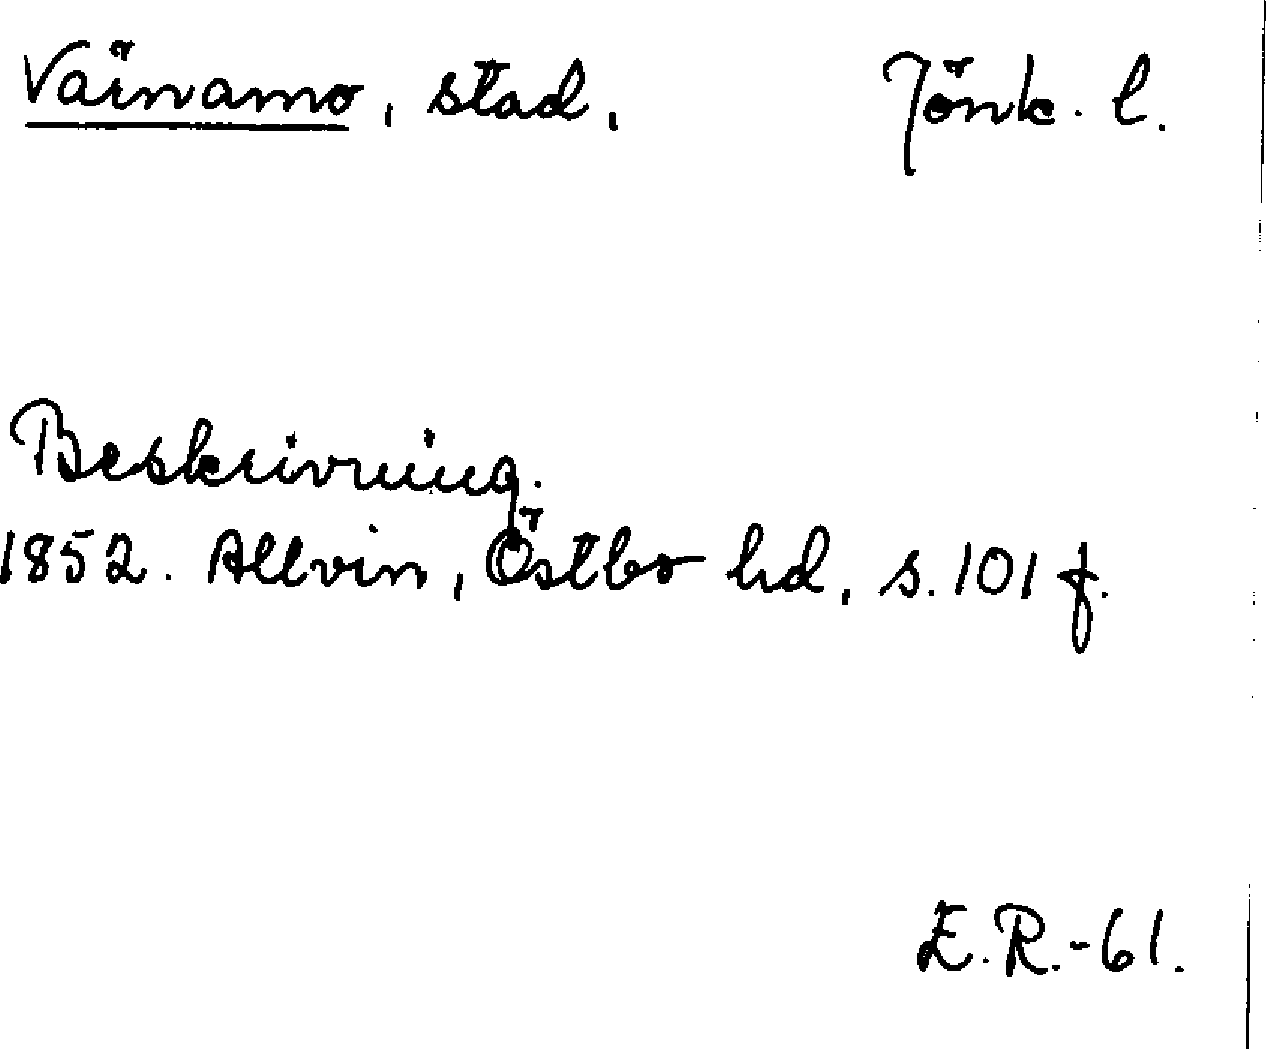 Värnamo, stad. Jönk. l.
Beskrivning.
1852. Allvin, Östbo hd, s. 101 f.
E.R.-61.